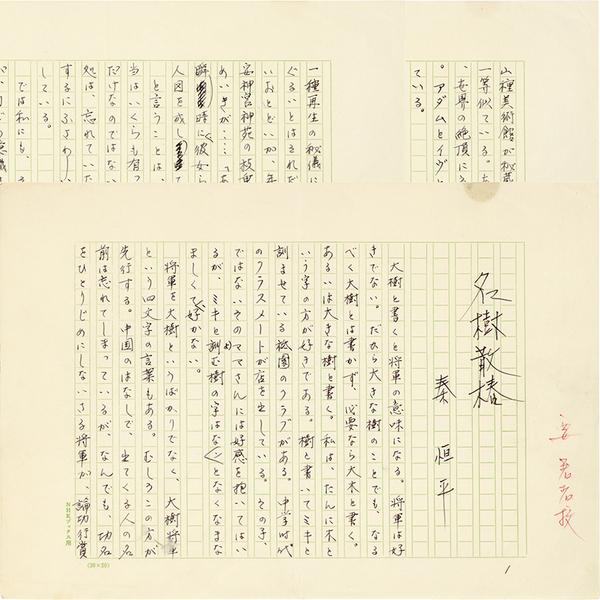 名樹散椿
秦 恒平
大樹と書くと将軍の意味になる。将軍は好
きでない。だから大きな樹のことでも、なる
べく大樹とは書かず、必要なら大木と書く。
あるいは大きな樹と書く。私は、たんに木と
いう字の方が好きである。樹と書いてミキと
訓ませている祇園のクラブがある。中学時代
のクラスメートが店を出している。その子、
ではないそのママさんには好感を抱いてはい
るが、ミキと訓む樹の字はなんとなくなまな
ましくて好かない。
将軍を大樹というばかりでなく、大樹将軍
という四文字の言葉もある。むしろこの方が
先行する。中国のはなしで、出てくる人の名
前は忘れてしまっているが、なんでも、功名
をひとりじめにしないさる将軍が、論功行賞
要著者校
NHKブックス用
(20×20)
1
山種美術館が秘蔵
一等似ている。
、世界の絶頂に
。アダムとイヴと
ている。
一種再生の秘儀に
ぐるいとはされだ
いおとどいが、年
安神宮神苑の枝垂
めいきが……
瞬時に彼女ら
人図を成して
と言うことは、
当はいくらも有っ
だけなのではない
処は、忘れていた
するにふさわしい
している。
では私にも、そ